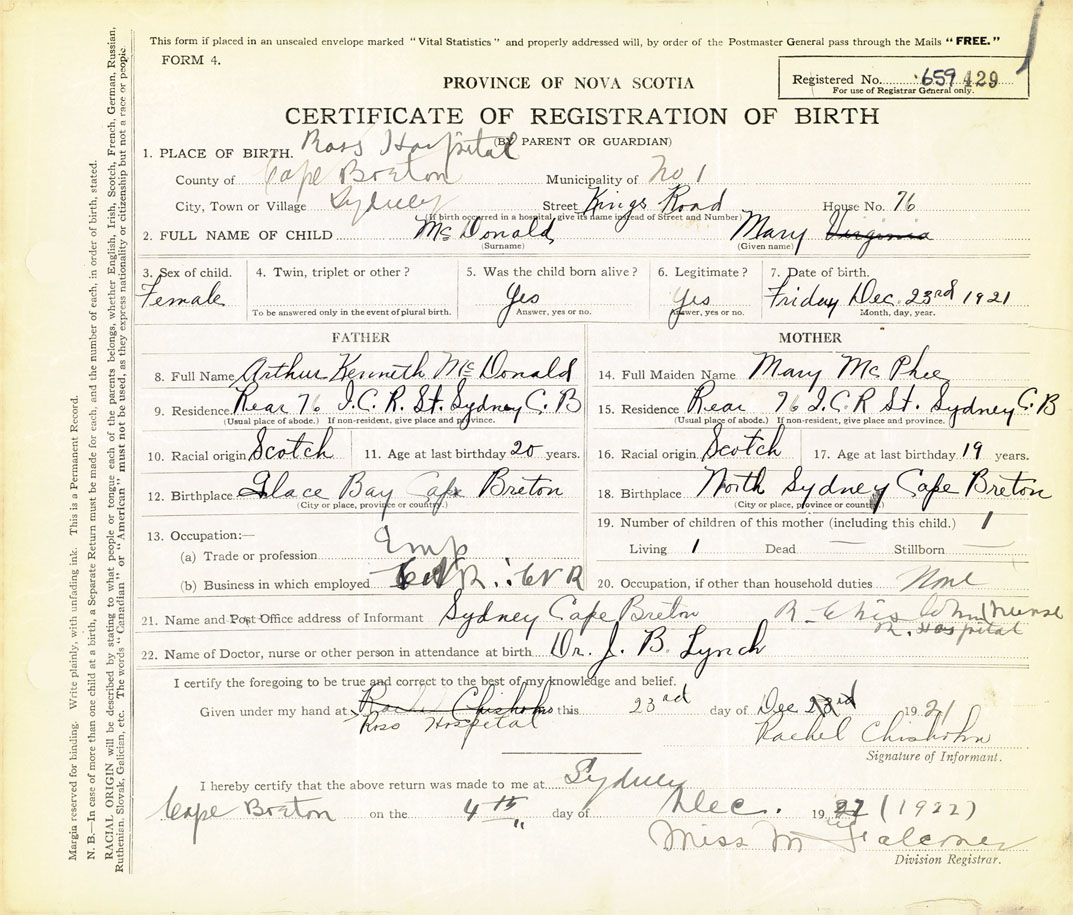 This form if placed in an unsealed envelope marked "Vital Statistics" and properly addressed will, by order of the Postmaster General pass through the Mails "FREE."
FORM 4.
Registered No. 659 429
For use of Registrar General only.
PROVINCE OF NOVA SCOTIA
CERTIFICATE OF REGISTRATION OF BIRTH
(BY PARENT OR GUARDIAN)
1. PLACE OF BIRTH. Ross Hospital
County of Cape Breton Municipality of No 1
City, Town or Village Sydney Street Kings Road House No. 76
(If birth occurred in a hospital, give its name instead of Street and Number)
2. FULL NAME OF CHILD McDonald Mary Virginia
(Surname) (Given name)
3. Sex of child. 4. Twin, triplet or other? 5. Was the child born alive? 6. Legitimate? 7. Date of birth.
Female Yes Yes Friday Dec. 23rd 1921
To be answered only in the event of plural birth. Answer, yes or no. Answer, yes or no. Month, day, year.
FATHER MOTHER
8. Full Name Arthur Kenneth McDonald 14. Full Maiden Name Mary McPhee
9. Residence Rear 76 I.C.R. St. Sydney C. B 15. Residence Rear 76 I.C.R St. Sydney C. B
(Usual place of abode.) If non-resident, give place and province. (Usual place of abode.) If non-resident, give place and province.
10. Racial origin Scotch 11. Age at last birthday 20 years. 16. Racial origin Scotch 17. Age at last birthday 19 years.
12. Birthplace Glace Bay Cape Breton 18. Birthplace North Sydney Cape Breton
(City or place, province or country.) (City or place, province or country.)
13. Occupation:— 19. Number of children of this mother (including this child.) 1
(a) Trade or profession Emp Living 1 Dead — Stillborn —
(b) Business in which employed CNR 20. Occupation, if other than household duties None
21. Name and Post Office address of Informant Sydney Cape Breton Nurse
R. Hospital
22. Name of Doctor, nurse or other person in attendance at birth Dr. J. B. Lynch
I certify the foregoing to be true and correct to the best of my knowledge and belief.
Given under my hand at Chisholm this 23rd day of Dec 23rd 1921
Ross Hospital Rachel Chisholm
Signature of Informant.
I hereby certify that the above return was made to me at Sydney
Cape Breton on the 4th day of Dec. 1922 (1922)
Miss M Falconer
Division Registrar.
Margin reserved for binding. Write plainly, with unfading ink. This is a Permanent Record.
N. B.—In case of more than one child at a birth, a Separate Return must be made for each, and the number of each, in order of birth, stated.
RACIAL ORIGIN will be described by stating to what people or tongue each of the parents belongs, whether English, Irish, Scotch, French, German, Russian,
Ruthenian, Slovak, Galician, etc. The words "Canadian" or "American" must not be used, as they express nationality or citizenship but not a race or people.